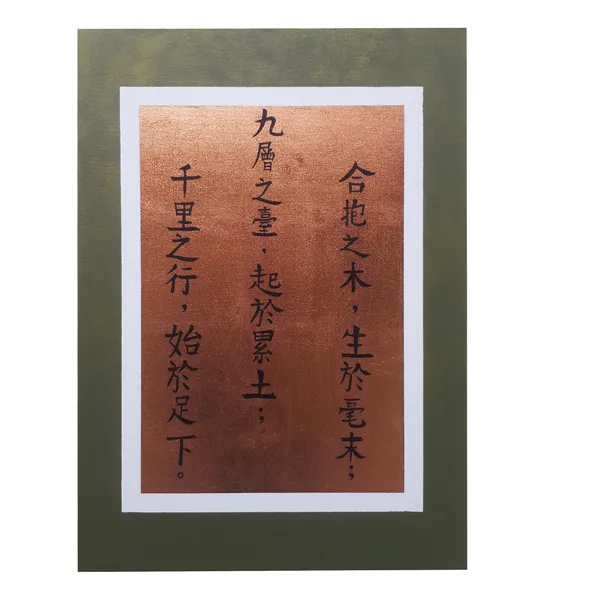 合抱之木，生於毫末；
九層之臺，起於累土；
千里之行，始於足下。